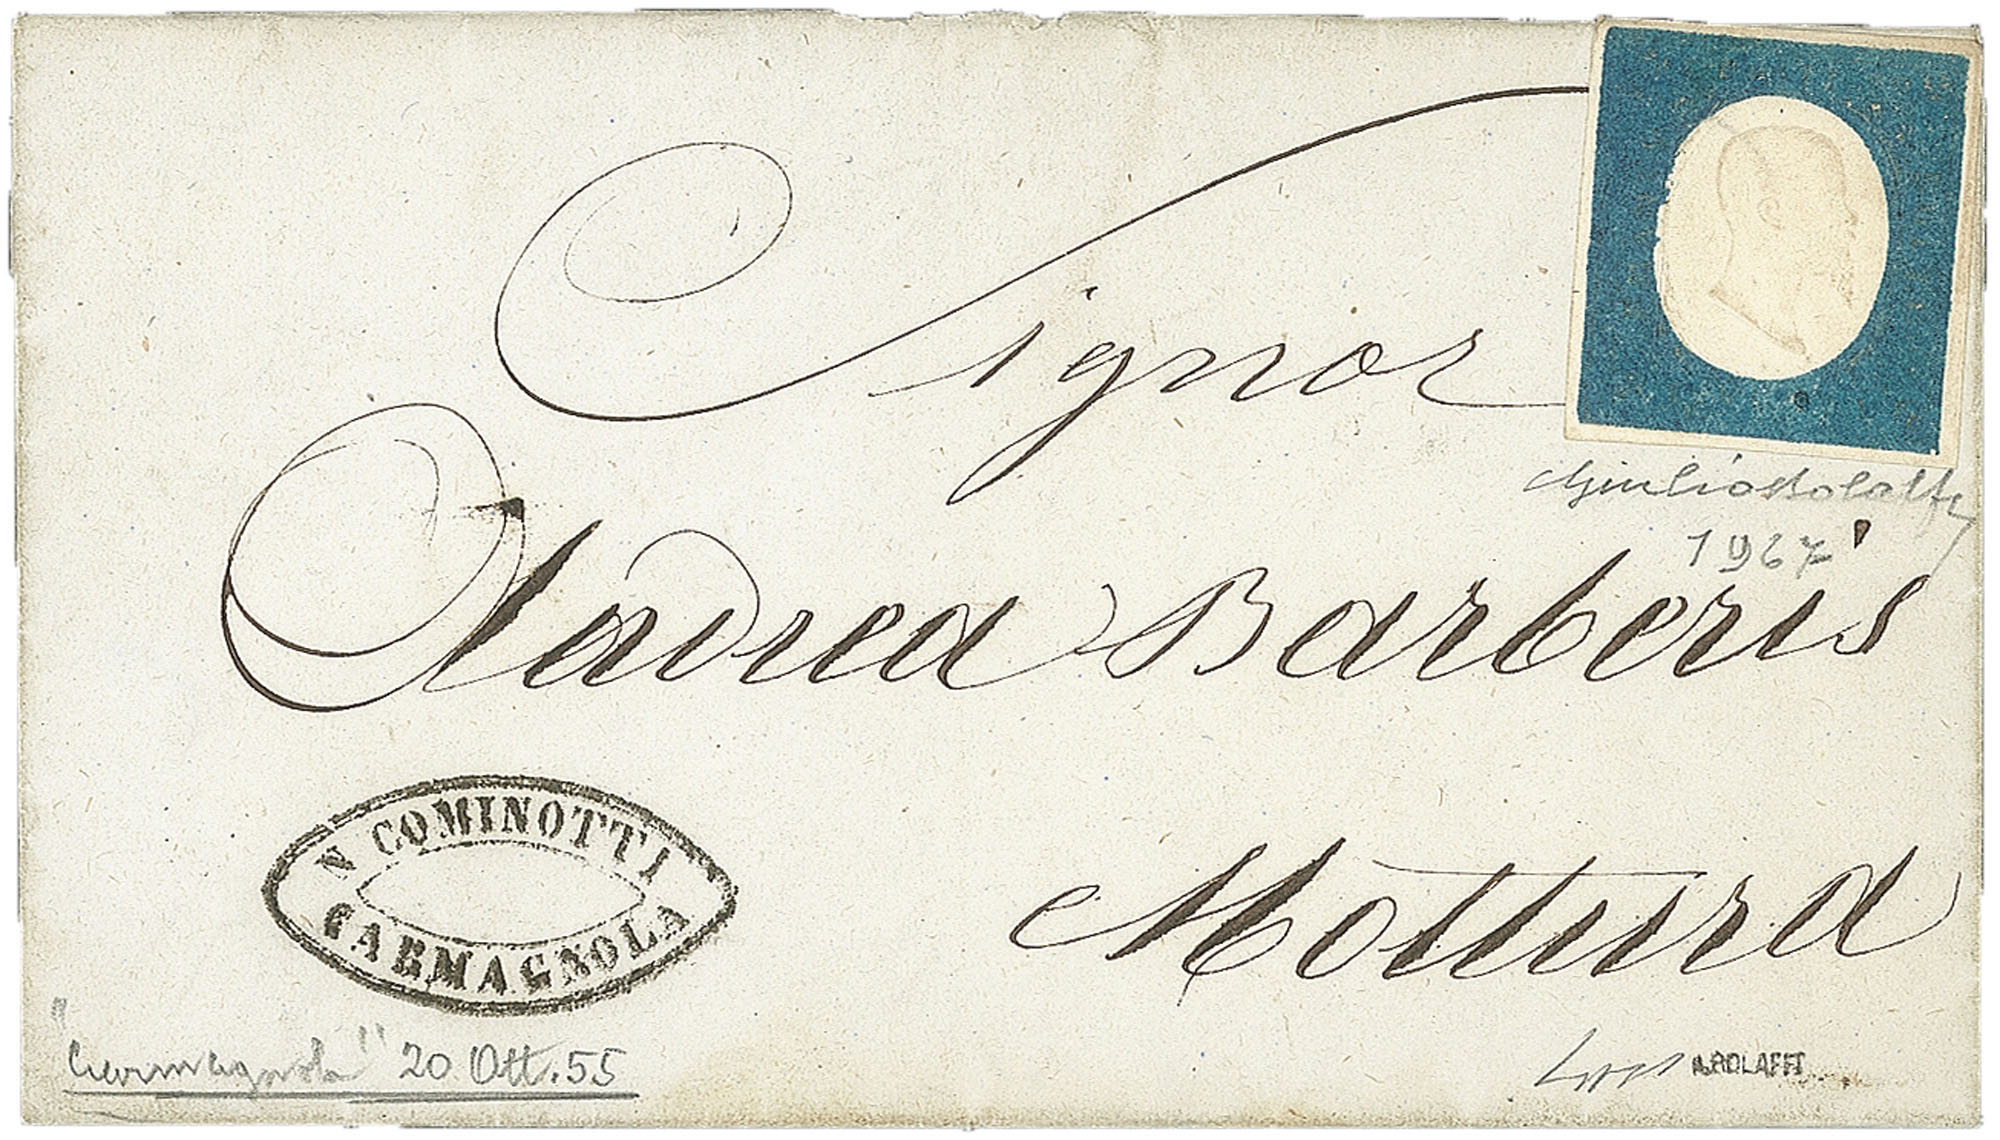 Signor
Andrea Barberis
Mottura
N COMINOTTI
CARMAGNOLA
"Carmagnola" 20 Ott. 55
Giulio Bolaffi
1967
A. BOLAFFI